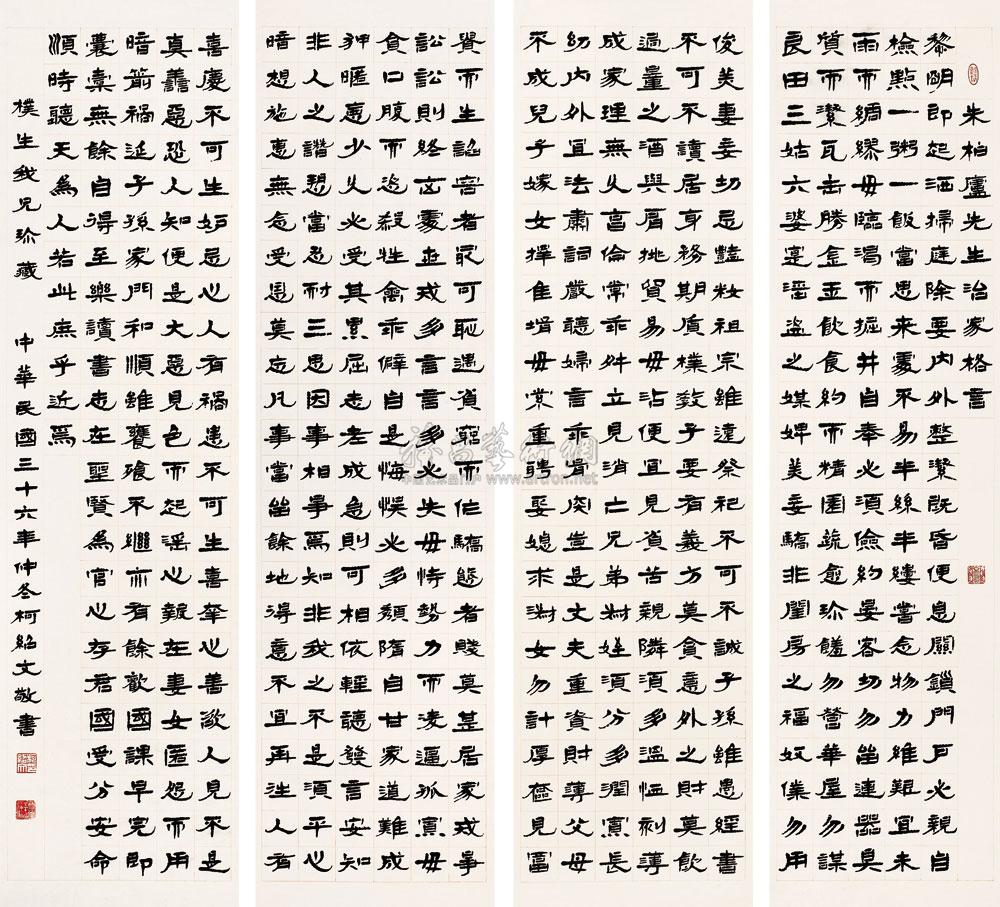 朱柏廬先生治家格言
黎明即起洒掃庭除要內外整潔既昏便息關鎖門戶必親自
檢點一粥一飯當思來處不易半絲半縷嘗念物力維艱宜未
雨而綢繆毋臨渴而掘井自奉必須儉約宴客切勿留連器具
質而潔瓦缶勝金玉飲食約而精園蔬愈珍饈勿營華屋勿謀
良田三姑六婆寔淫盜之媒婢美妾驕非閨房之福奴僕勿用
俊美妻妾切忌豔粧祖宗雖遠祭祀不可不誠子孫雖愚經書
不可不讀居身務期質樸教子要有義方莫貪意外之財莫飲
過量之酒與肩挑貿易毋沾便宜見貧苦親鄰須多溫恤刻薄
成家理無久享倫常乖舛立見消亡兄弟叔姪須分多潤寡長
幼內外宜法肅詞嚴聽婦言乖骨肉豈是丈夫重資財薄父母
不成兒子嫁女擇佳壻毋索重聘娶媳求淑女勿計厚奩見富
貴而生諂容者最可恥遇貧窮而作驕態者賤莫甚居家戒爭
訟訟則終凶處世戒多言言多必失毋恃勢力而凌逼孤寡毋
貪口腹而恣殺牲禽乖僻自是悔悞必多頹惰自甘家道難成
狎暱惡少久必受其累屈志老成急則可相依輕聽發言安知
非人之譖愬當忍耐三思因事相爭焉知非我之不是須平心
暗想施惠無念受恩莫忘凡事當留餘地得意不宜再往人有
喜慶不可生妒忌心人有禍患不可生喜幸心善欲人見不是
真善惡恐人知便是大惡見色而起淫心報在妻女匿怨而用
暗箭禍延子孫家門和順雖饔飧不繼亦有餘歡國課早完即
囊橐無餘自得至樂讀書志在聖賢為官心存君國受分安命
順時聽天為人若此庶乎近焉
樸生我兄珍藏 中華民國三十六年仲冬柯紹文敬書
雅昌藝術網
www.artron.net